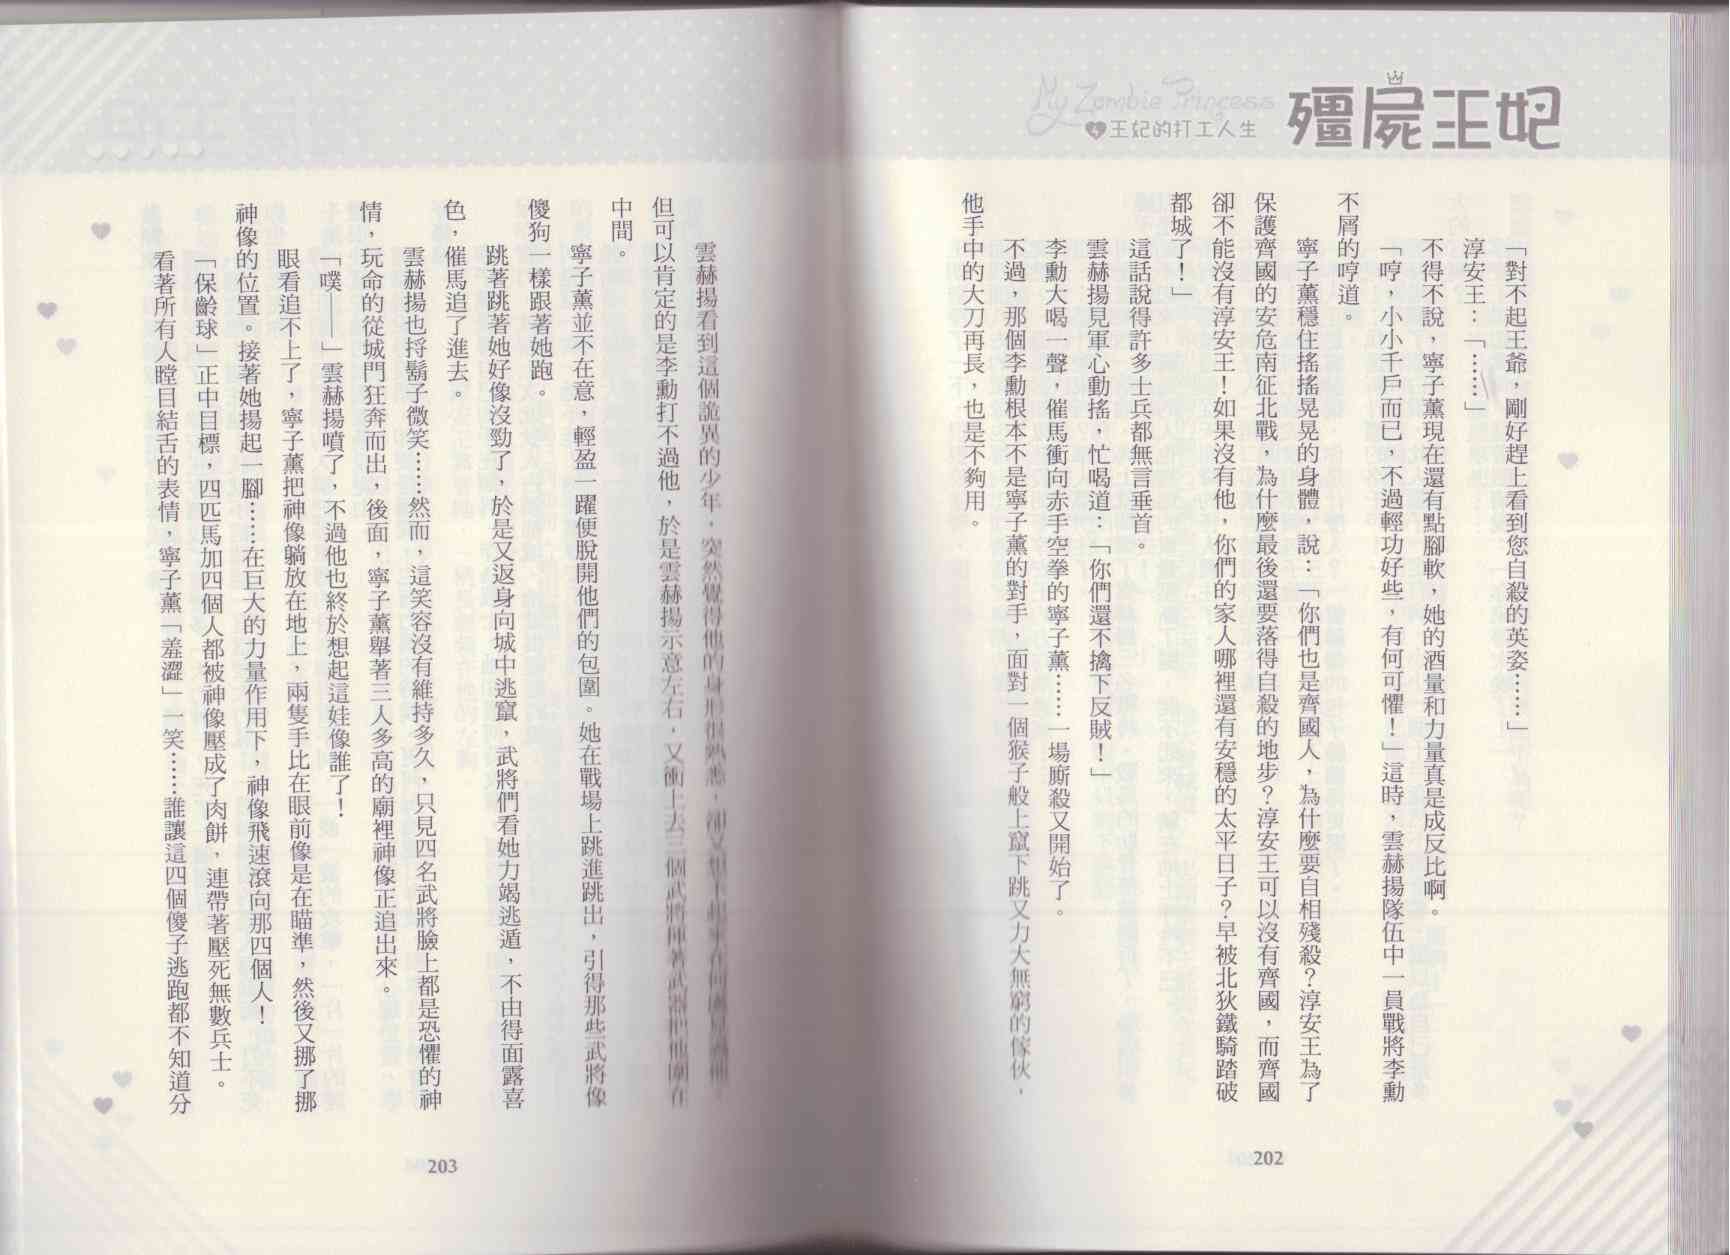 My Zombie Princess
殭屍王妃
4王妃的打工人生
「對不起王爺，剛好趕上看到您自殺的英姿……」
淳安王：「……」
不得不說，寧子薰現在還有點腳軟，她的酒量和力量真是成反比啊。
「哼，小小千戶而已，不過輕功好些，有何可懼！」這時，雲赫揚隊伍中一員戰將李勳
不屑的哼道。
寧子薰穩住搖搖晃晃的身體，說：「你們也是齊國人，為什麼要自相殘殺？淳安王為了
保護齊國的安危南征北戰，為什麼最後還要落得自殺的地步？淳安王可以沒有齊國，而齊國
卻不能沒有淳安王！如果沒有他，你們的家人哪裡還有安穩的太平日子？早被北狄鐵騎踏破
都城了！」
這話說得許多士兵都無言垂首。
雲赫揚見軍心動搖，忙喝道：「你們還不擒下反賊！」
李勳大喝一聲，催馬衝向赤手空拳的寧子薰……一場廝殺又開始了。
不過，那個李勳根本不是寧子薰的對手，面對一個猴子般上竄下跳又力大無窮的傢伙，
他手中的大刀再長，也是不夠用。
202
雲赫揚看到這個詭異的少年，突然覺得他的身形很熟悉，卻又想不起來在何處見過他。
但可以肯定的是李勳打不過他，於是雲赫揚示意左右，又衝上去三個武將揮著武器把他圍在
中間。
寧子薰並不在意，輕盈一躍便脫開他們的包圍。她在戰場上跳進跳出，引得那些武將像
傻狗一樣跟著她跑。
跳著跳著她好像沒勁了，於是又返身向城中逃竄，武將們看她力竭逃遁，不由得面露喜
色，催馬追了進去。
雲赫揚也捋鬍子微笑……然而，這笑容沒有維持多久，只見四名武將臉上都是恐懼的神
情，玩命的從城門狂奔而出，後面，寧子薰舉著三人多高的廟裡神像正追出來。
「噗——」雲赫揚噴了，不過他也終於想起這娃像誰了！
眼看追不上了，寧子薰把神像躺放在地上，兩隻手比在眼前像是在瞄準，然後又挪了挪
神像的位置。接著她揚起一腳……在巨大的力量作用下，神像飛速滾向那四個人！
「保齡球」正中目標，四匹馬加四個人都被神像壓成了肉餅，連帶著壓死無數兵士。
看著所有人瞠目結舌的表情，寧子薰「羞澀」一笑……誰讓這四個傻子逃跑都不知道分
203